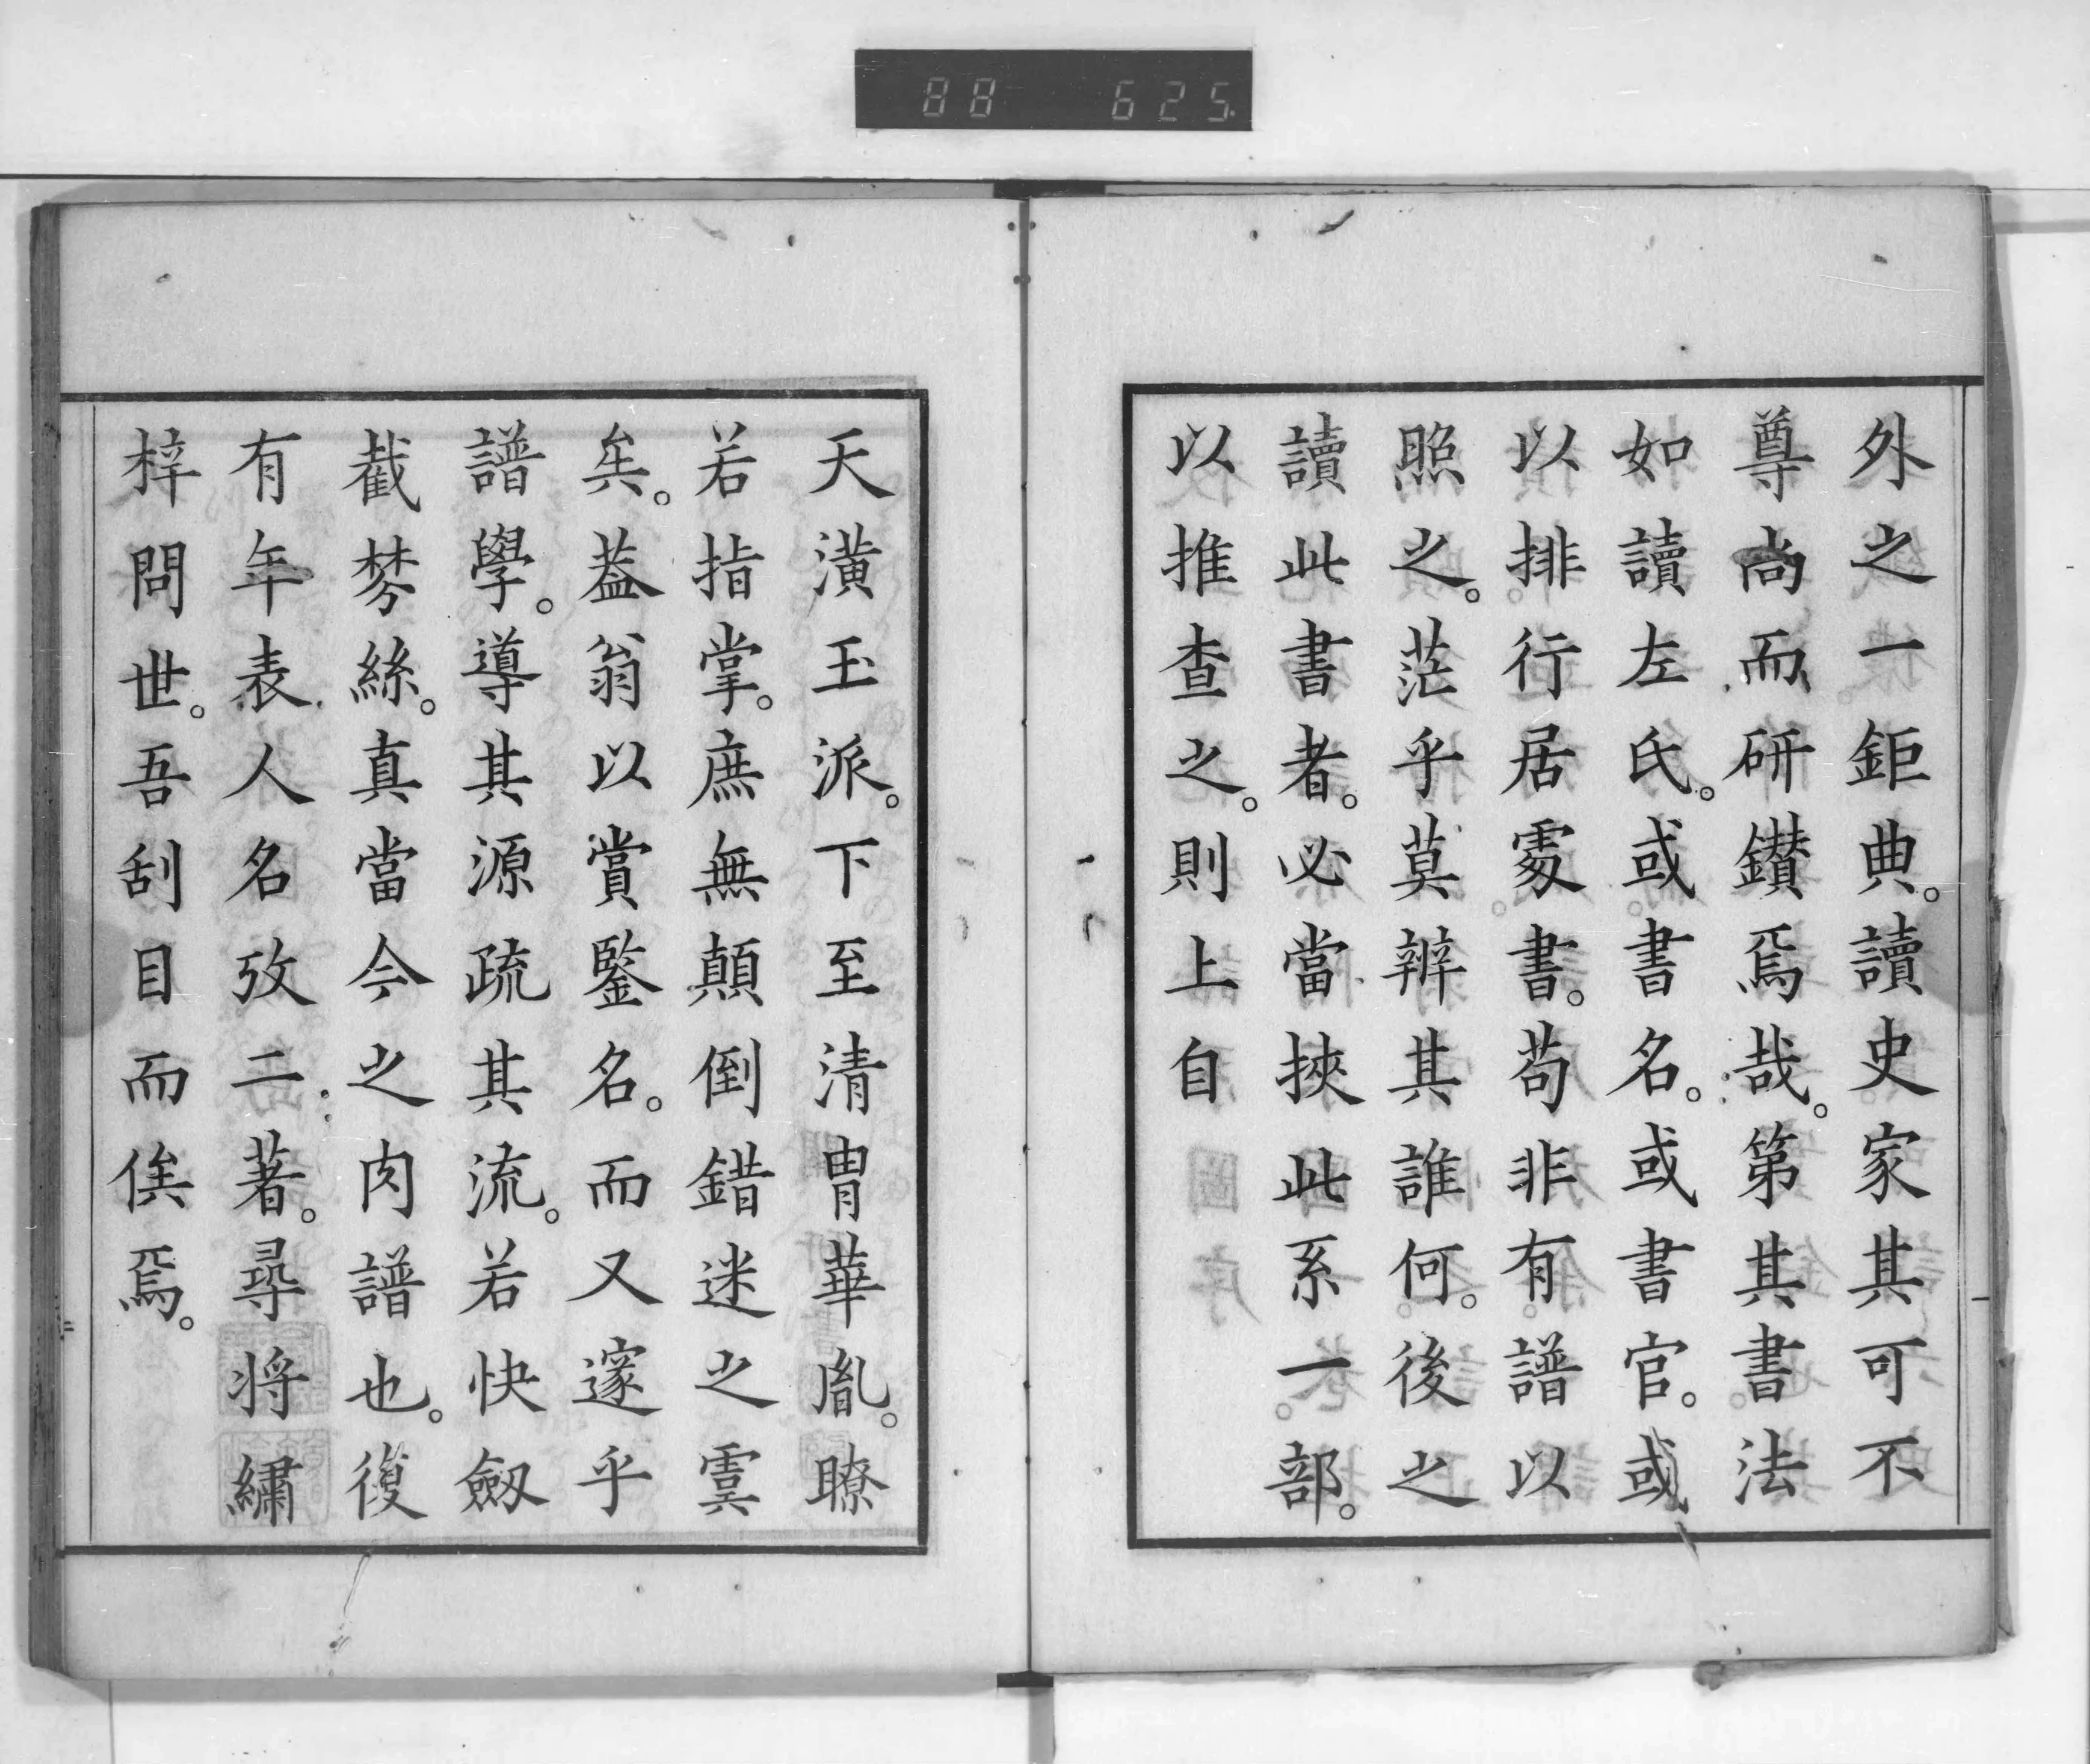 88 625
外之一鉅典。讀史家其可不
尊尚而研鑚焉哉。第其書法
如讀左氏。或書名。或書官。或
以排行居處書。苟非有譜以
照之。茫乎莫辨其誰何。後之
讀此書者。必當挾此系一部。
以推查之。則上自
天潢玉派。下至清冑華胤。瞭
若指掌。庶無顛倒錯迷之虞
矣。蓋翁以賞鑒名。而又邃乎
譜學。導其源疏其流。若快劔
截棼絲。真當今之肉譜也。復
有年表人名攷二著。尋将繡
梓問世。吾刮目而俟焉。